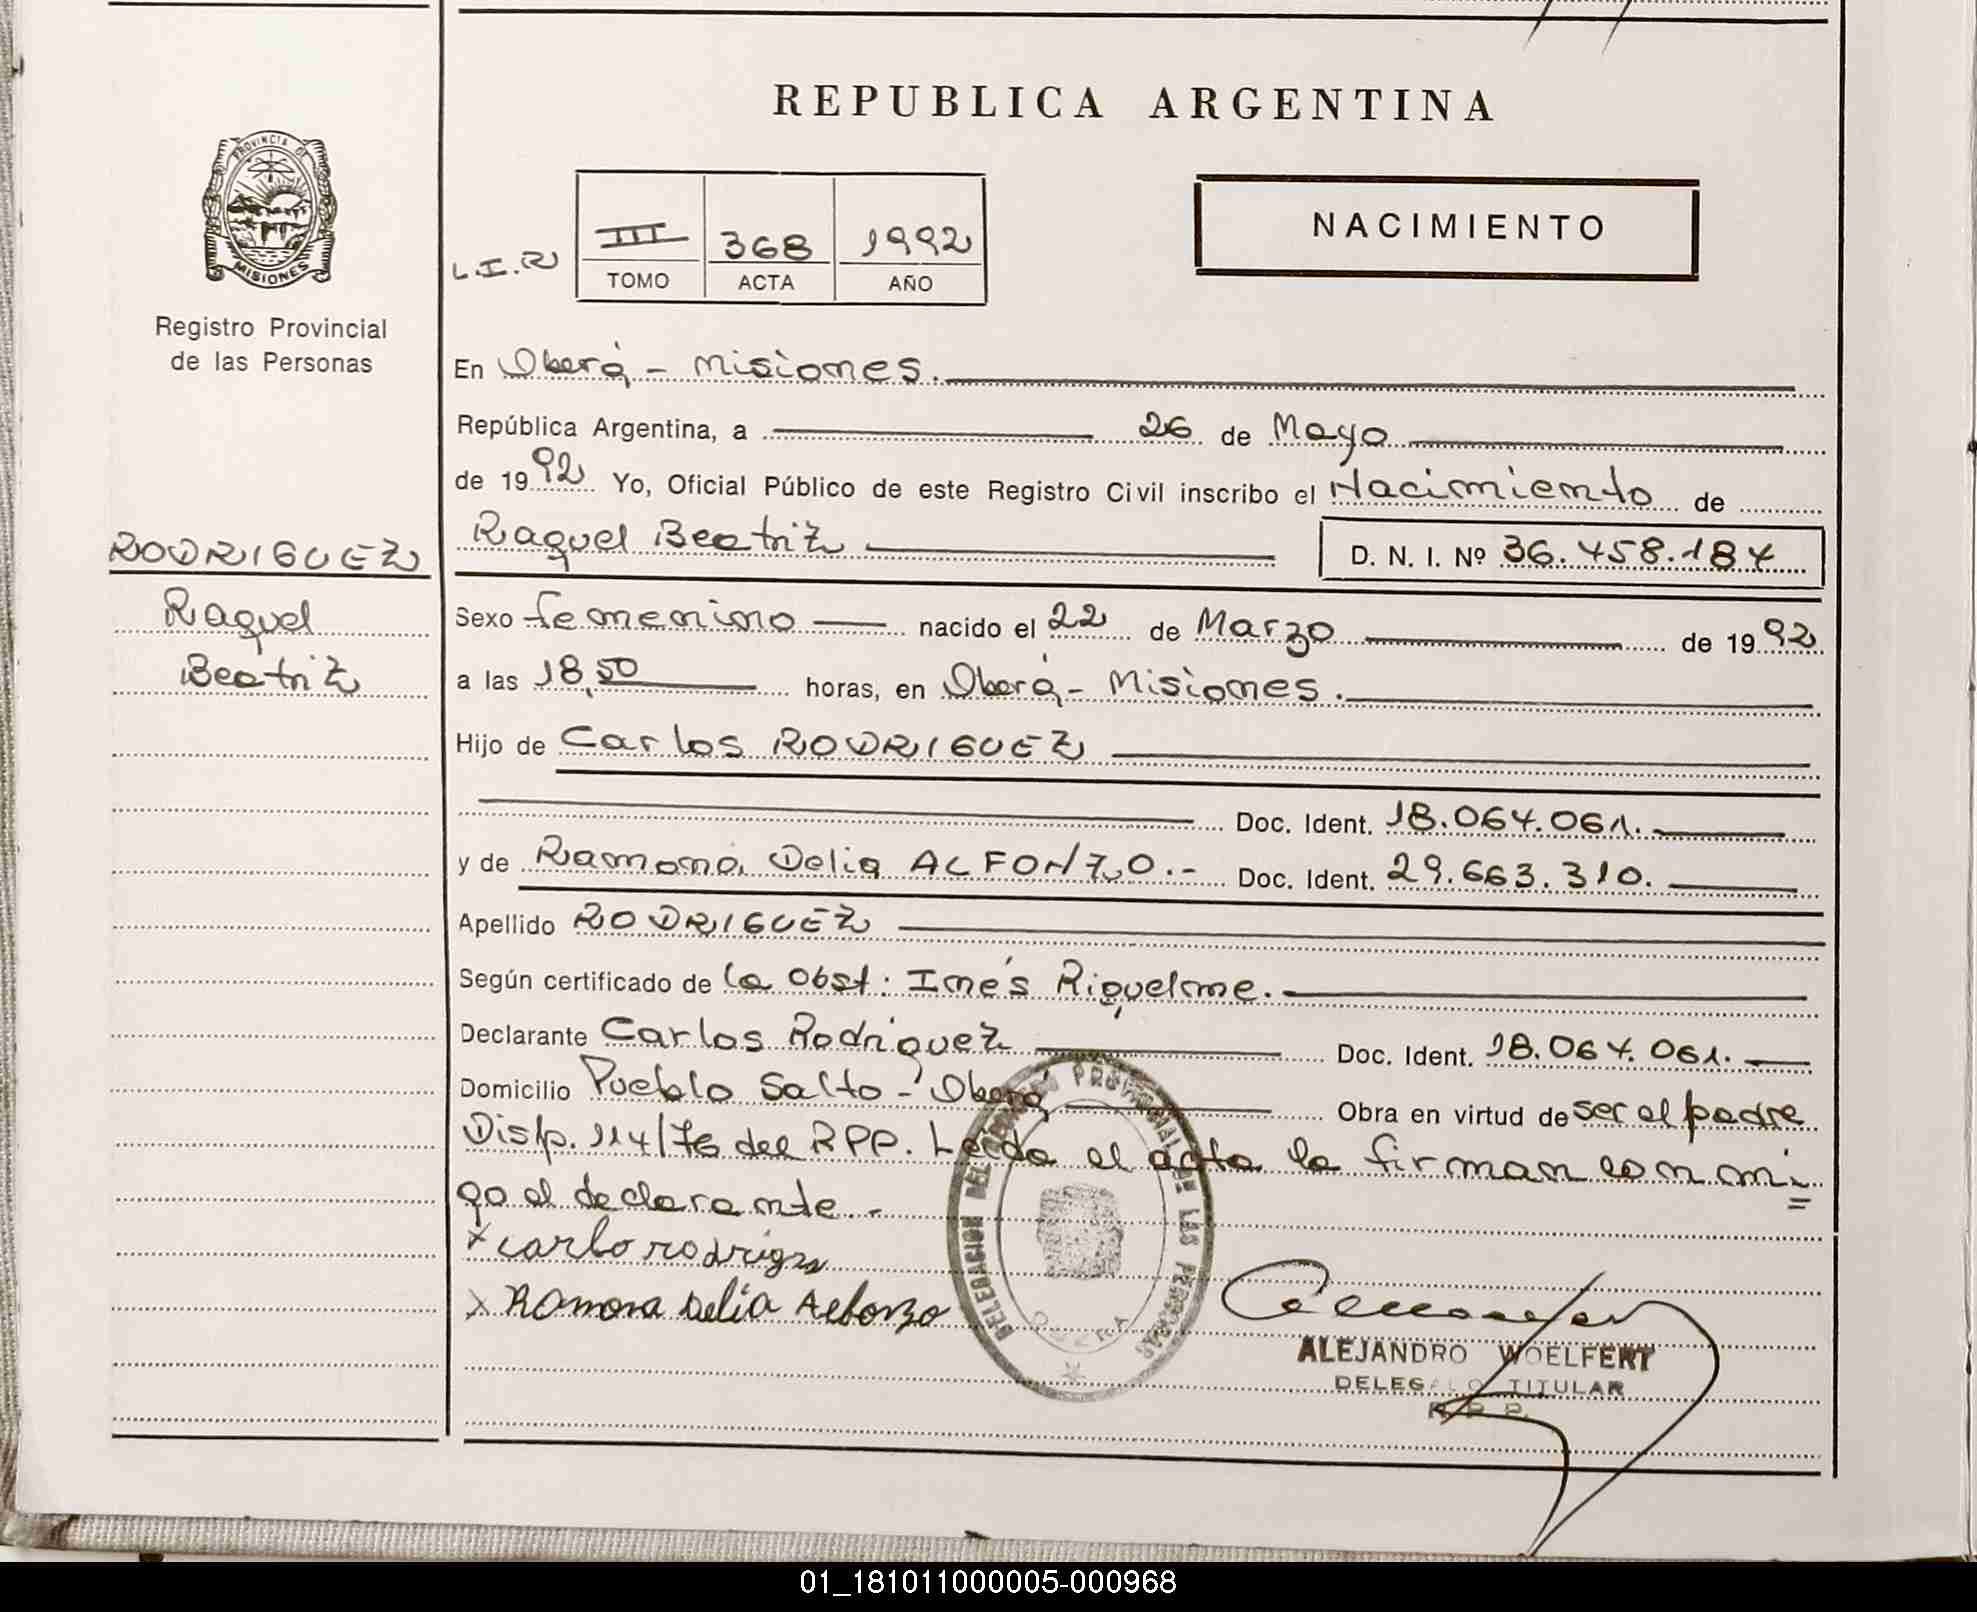 REPUBLICA ARGENTINA
PROVINCIA DE
MISIONES
Registro Provincial
de las Personas
L.I.R
III 368 1992
TOMO ACTA AÑO
NACIMIENTO
En Oberá - Misiones.
República Argentina, a 26 de Mayo
de 1992 Yo, Oficial Público de este Registro Civil inscribo el Nacimiento de
Raquel Beatriz D. N. I. Nº 36.458.184
RODRIGUEZ
Raquel
Beatriz
Sexo femenino nacido el 22 de Marzo de 1992
a las 18,50 horas, en Oberá - Misiones.
Hijo de Carlos RODRIGUEZ
Doc. Ident. 18.064.061.
y de Ramona Delia ALFONZO.- Doc. Ident. 29.663.310.
Apellido RODRIGUEZ
Según certificado de la Obst: Inés Riquelme.
Declarante Carlos Rodriguez Doc. Ident. 18.064.061.
Domicilio Pueblo Salto - Oberá Obra en virtud de ser el padre
Disp. 114/76 del RPP. Leida el acta la firman conmi=
go el declarante.-
x carlo rodrigz
x Ramona Delia Alfonzo
DELEGACION DEL REGISTRO PROVINCIAL DE LAS PERSONAS
ALEJANDRO WOELFERT
DELEGADO TITULAR
R.P.P.
01_181011000005-000968